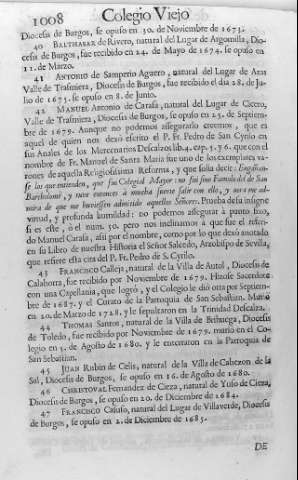 1008 Colegio Viejo
Diocesis de Burgos, se opuso en 30. de Noviembre de 1673.
40 BALTHASAR de Rivero, natural del Lugar de Argomilla, Dio-
cesis de Burgos, fue recibido en 24. de Mayo de 1674. se opuso en
12. de Marzo.
41 ANTONIO de Samperio Aguero, natural del Lugar de Aras
Valle de Trasmiera, Diocesis de Burgos, fue recibido el dia 28. de Ju-
lio de 1675. se opuso en 8. de Junio.
42 MANUEL Antonio de Carasa, natural del Lugar de Cicero,
Valle de Trasmiera, Diocesis de Burgos, se opuso en 25. de Septiem-
bre de 1679. Aunque no podemos assegurarlo creemos, que es
aquel de quien nos dexó escrito el P. Fr. Pedro de San Cyrilo en
sus Anales de los Mercenarios Descalzos lib. 4. cap. 5. y 6. que con el
nombre de Fr. Manuel de Santa Maria fue uno de los exemplares va-
rones de aquella Religiosissima Reforma, y que solia decir: Engañan-
se los que entienden, que fui Colegial Mayor: no fui sino Famulo del de San
Bartholomé, y tuve entonces à mucha suerte salir con ello, y aora me ad-
miro de que me huviessen admitido aquellos Señores. Prueba de su insigne
virtud, y profunda humildad: no podemos assegurar à punto fixo,
si es este, ò el num. 30. pero nos inclinamos à que fue el referi-
do Manuel Carasa, assi por el nombre, como por lo que dexó anotado
en su Libro de nuestra Historia el Señor Salcedo, Arzobispo de Sevilla,
que refiere esta cita del P. Fr. Pedro de S. Cyrilo.
43 FRANCISCO Calleja, natural de la Villa de Autol, Diocesis de
Calahorra, fue recibido por Noviembre de 1679. Hizose Sacerdote
con una Capellania, que logró, y el Colegio le dió otra por Septiem-
bre de 1687. y el Curato de la Parroquia de San Sebastian. Murió
en 20. de Marzo de 1728. y le sepultaron en la Trinidad Descalza.
44 THOMAS Santos, natural de la Villa de Brihuega, Diocesis
de Toledo, fue recibido por Noviembre de 1679. murió en el Co-
legio en 5. de Agosto de 1680. y le enterraron en la Parroquia de
San Sebastian.
45 JUAN Rubin de Celis, natural de la Villa de Cabezon de la
Sal, Diocesis de Burgos, se opuso en 16. de Agosto de 1680.
46 CHRISTOVAL Fernandez de Cieza, natural de Yuso de Cieza,
Diocesis de Burgos, se opuso en 20. de Diciembre de 1684.
47 FRANCISCO natural del Lugar de Villaverde, Diocesis
de Burgos, se opuso en 2. de Diciembre de 1685.
DE